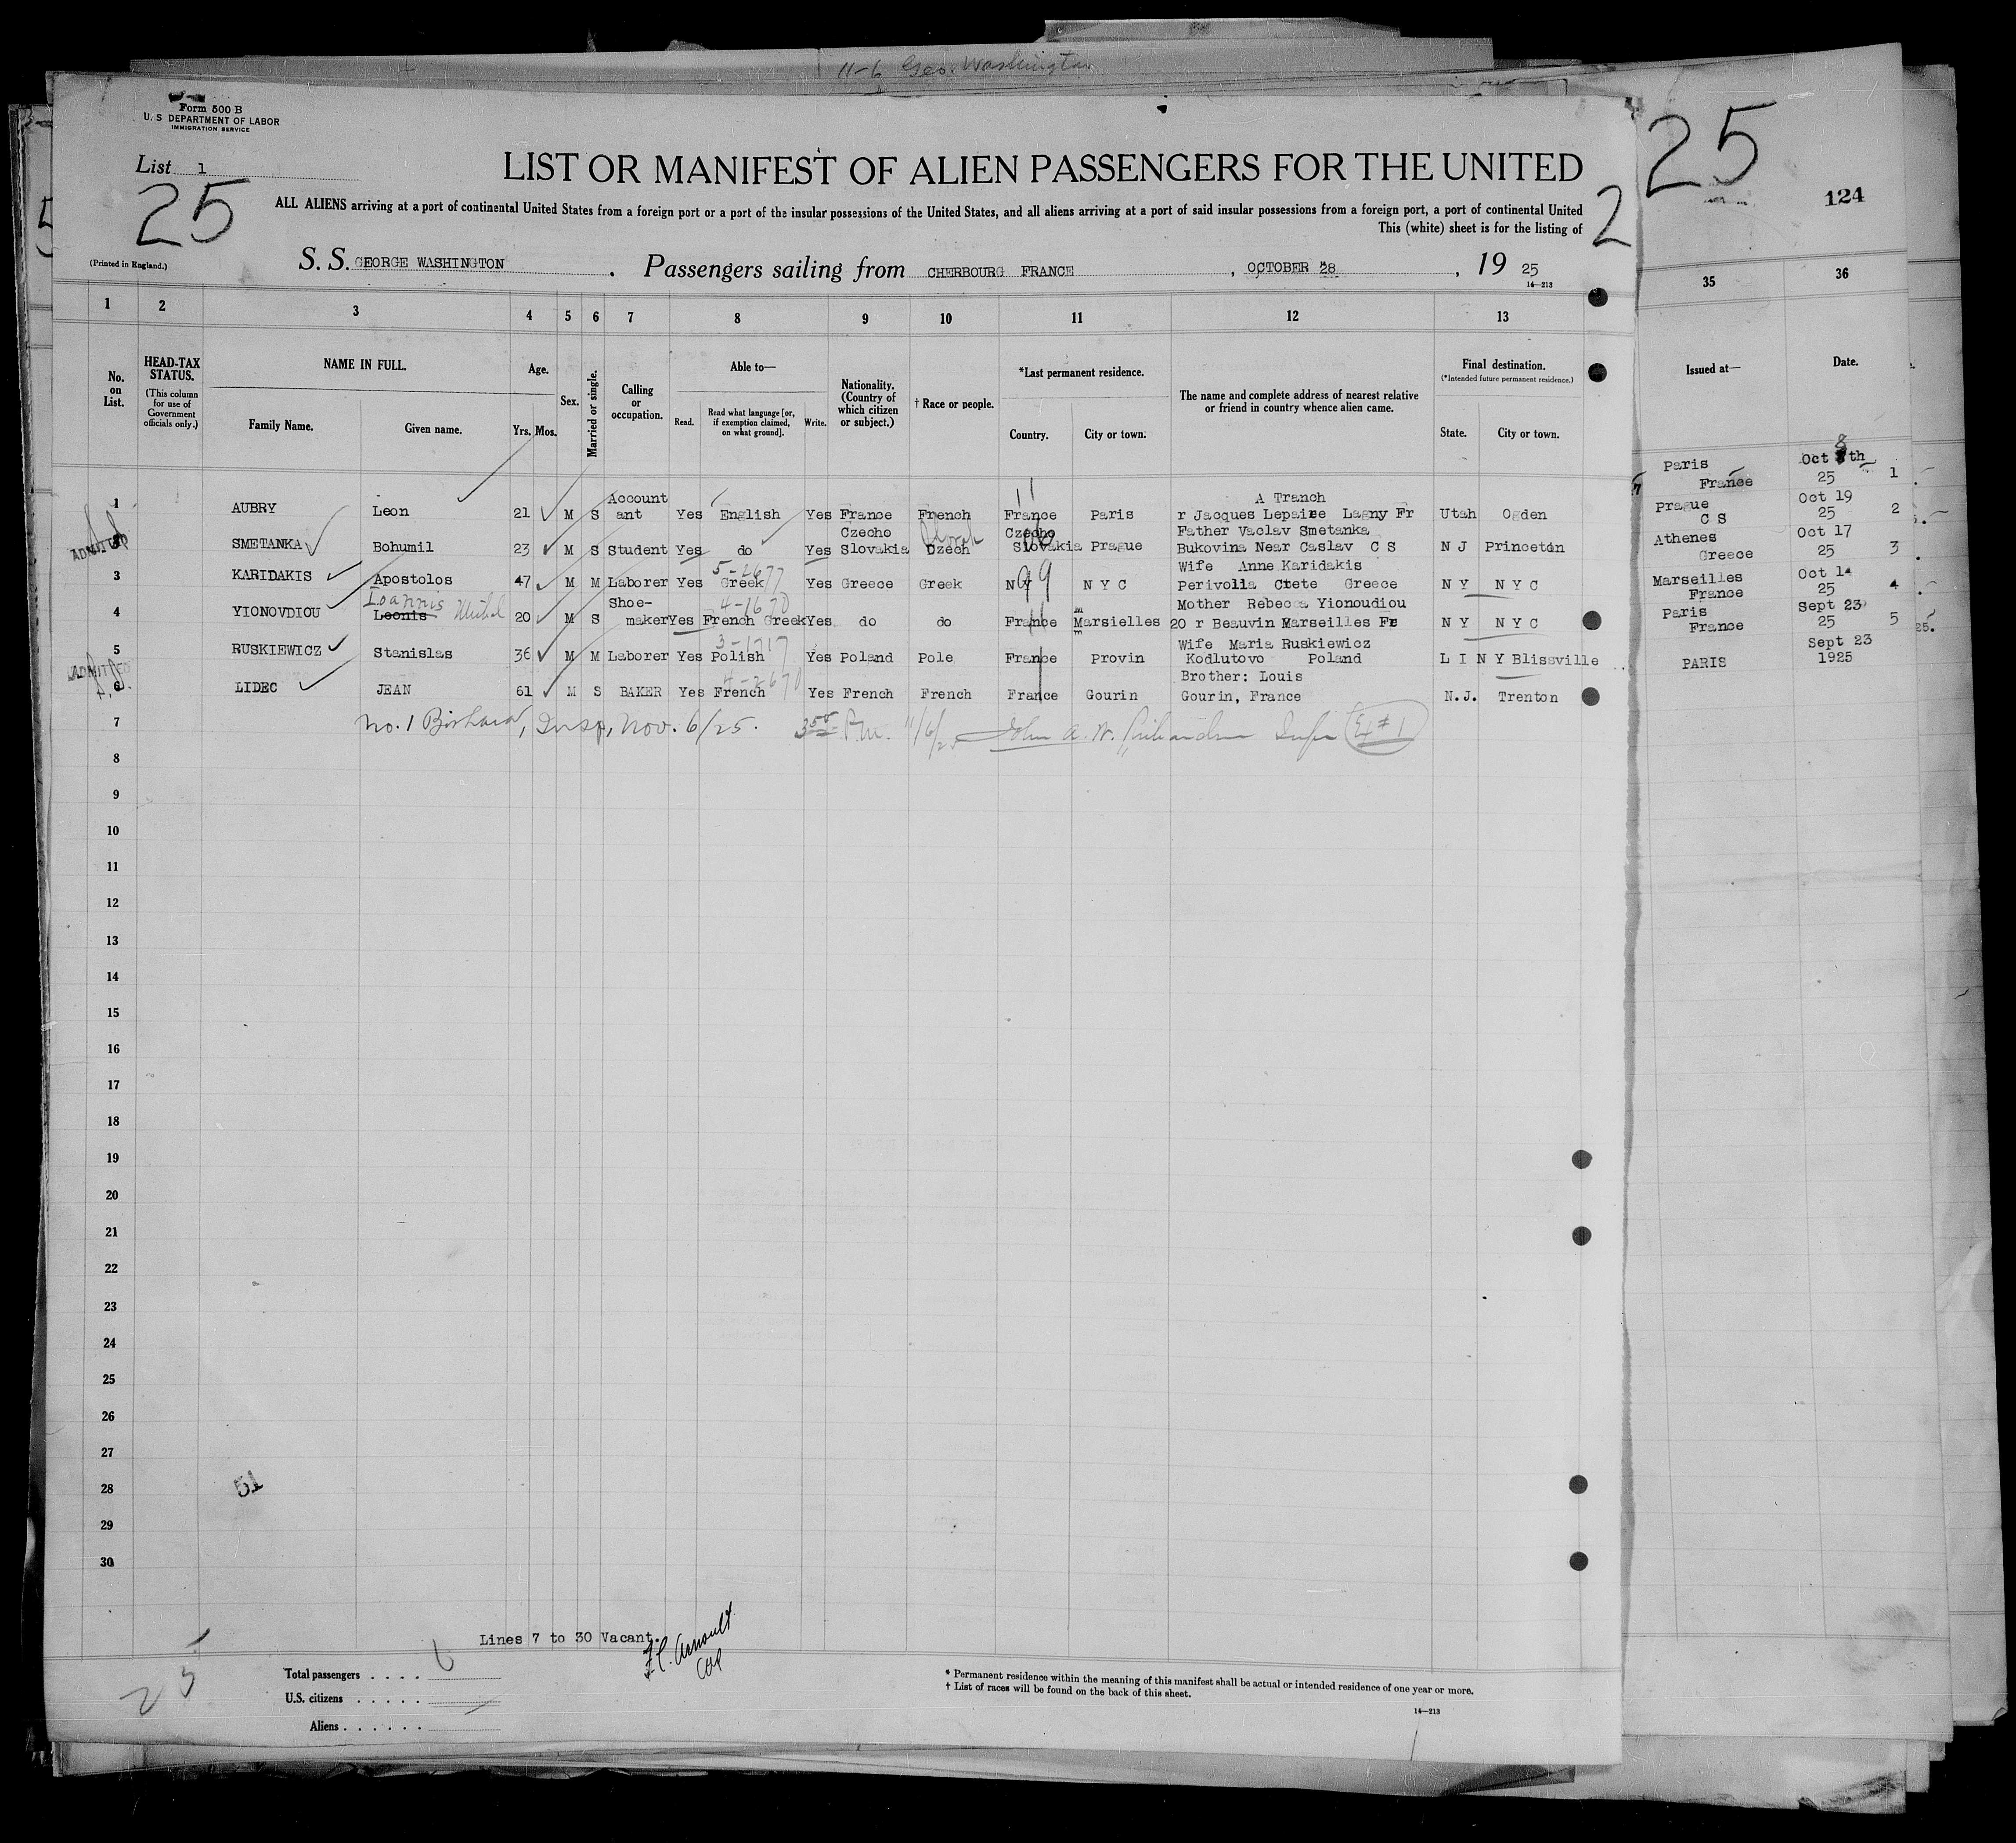 11-6 Geo. Washington
Form 500 B
U. S DEPARTMENT OF LABOR
IMMIGRATION SERVICE
List 1
LIST OR MANIFEST OF ALIEN PASSENGERS FOR THE UNITED
25
25
124
2
ALL ALIENS arriving at a port of continental United States from a foreign port or a port of the insular possessions of the United States, and all aliens arriving at a port of said insular possessions from a foreign port, a port of continental United
This (white) sheet is for the listing of
(Printed in England.)
S. S. GEORGE WASHINGTON . Passengers sailing from CHERBOURG FRANCE , OCTOBER 28 , 19 25
14—213
1 2 3 4 5 6 7 8 9 10 11 12 13 35 36
No. on List.
HEAD-TAX STATUS.
(This column for use of Government officials only.)
NAME IN FULL.
Family Name. Given name.
Age.
Yrs. Mos.
Sex.
Married or single.
Calling or occupation.
Able to—
Read. Read what language [or, if exemption claimed, on what ground]. Write.
Nationality. (Country of which citizen or subject.)
† Race or people.
*Last permanent residence.
Country. City or town.
The name and complete address of nearest relative or friend in country whence alien came.
Final destination.
(*Intended future permanent residence.)
State. City or town.
Issued at— Date.
1 AUBRY Leon 21 M S Account ant Yes English Yes France French France Paris A Tranch r Jacques Lepaire Lagny Fr Utah Ogden
Paris France Oct 8th 25 1
ADMITTED
SMETANKA Bohumil 23 M S Student Yes do Yes Czecho Slovakia Czech Czecho Slovakia Prague Father Vaclav Smetanka Bukovina Near Caslav C S N J Princeton
Prague C S Oct 19 25 2
5-2677
3 KARIDAKIS Apostolos 47 M M Laborer Yes Greek Yes Greece Greek N Y N Y C Wife Anne Karidakis Perivolia Ctete Greece N Y N Y C
99
Athenes Greece Oct 17 25 3
Ioannis
4-1670
4 YIONOVDIOU Leonis 20 M S Shoe- maker Yes French Greek Yes do do France Marsielles Mother Rebecca Yionoudiou 20 r Beauvin Marseilles Fr N Y N Y C
Marseilles France Oct 14 25 4
3-1717
5 RUSKIEWICZ Stanislas 36 M M Laborer Yes Polish Yes Poland Pole France Provin Wife Maria Ruskiewicz Kodlutovo Poland L I N Y Blissville
Paris France Sept 23 25 5
25.
ADMITTED
4-2670
6 LIDEC JEAN 61 M S BAKER Yes French Yes French French France Gourin Brother: Louis Gourin, France N.J. Trenton
PARIS Sept 23 1925
7 No. 1 Insp, Nov. 6/25. 3 50 P.m. 11/6/25 John A. W. Richardson Insp Ex #1
8
9
10
11
12
13
14
15
16
17
18
19
20
21
22
23
24
25
26
27
28
29
30
51
Lines 7 to 30 Vacant.
25
Total passengers . . . . 6
U.S. citizens . . . . .
Aliens . . . . . .
* Permanent residence within the meaning of this manifest shall be actual or intended residence of one year or more.
† List of races will be found on the back of this sheet.
14—213